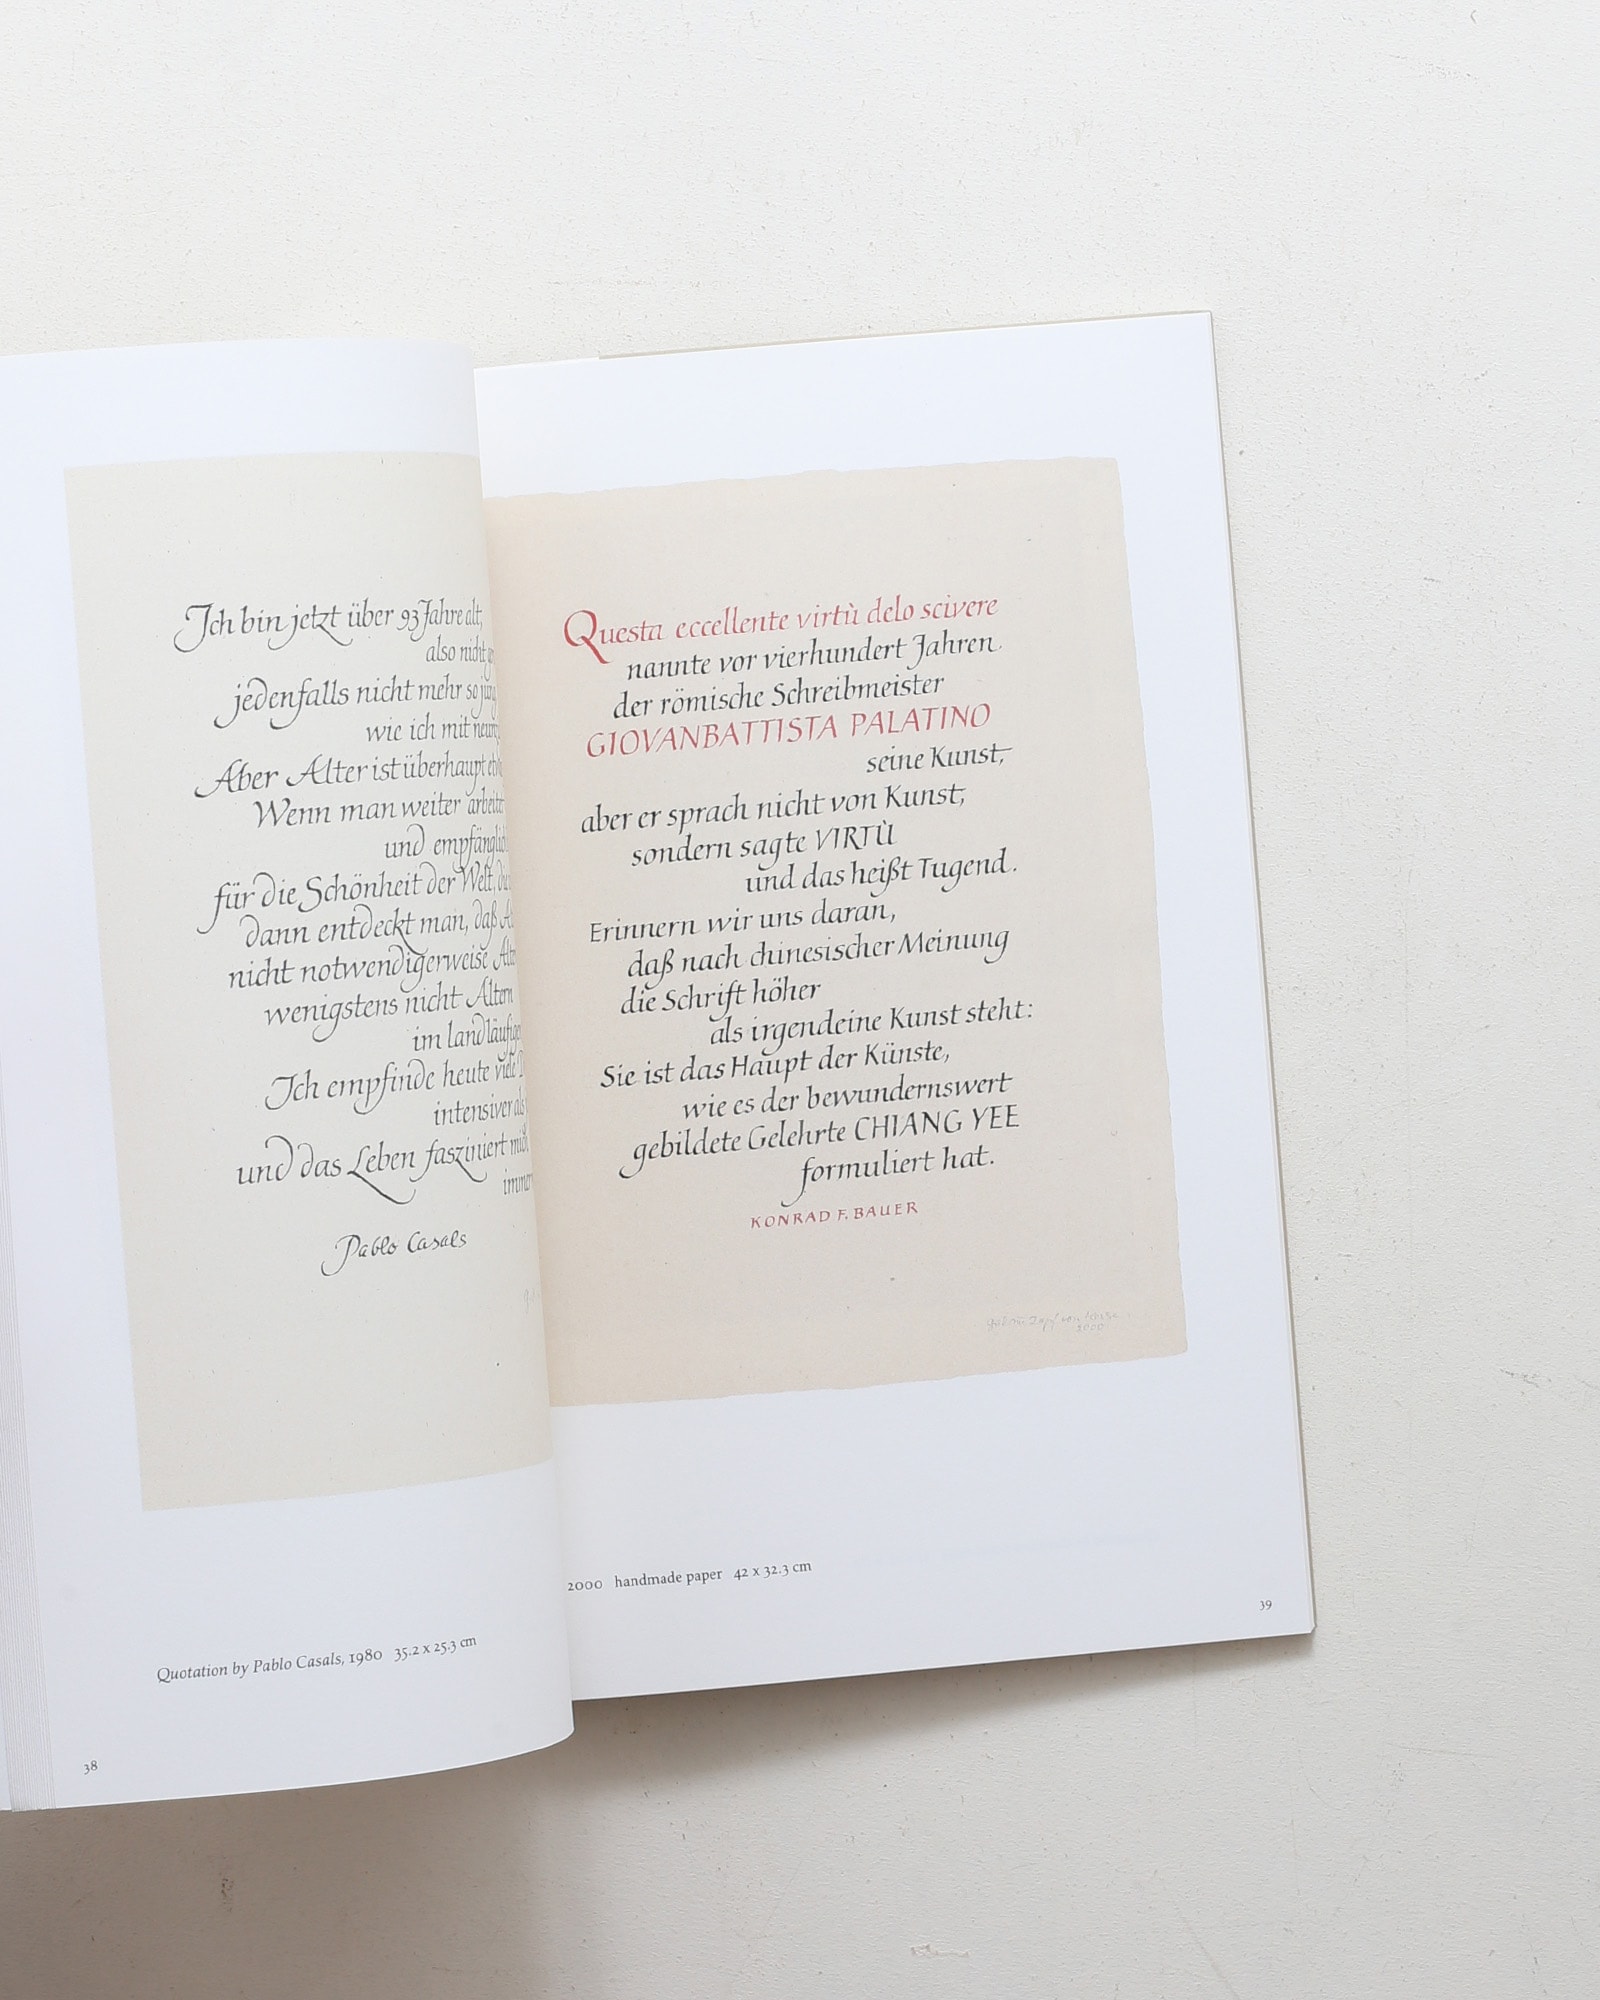 Ich bin jetzt über 93 Jahre alt,
also nicht
jedenfalls nicht mehr so jung
wie ich mit
Aber Alter ist überhaupt
Wenn man weiter
und
für die Schönheit der Welt,
dann entdeckt man, daß
nicht notwendigerweise
wenigstens nicht Altern
im
Ich empfinde heute viele
intensiver als
und das Leben fasziniert mich
immer
Pablo Casals
Quotation by Pablo Casals, 1980 35.2 x 25.3 cm
38
Questa eccellente virtù delo scivere
nannte vor vierhundert Jahren
der römische Schreibmeister
GIOVANBATTISTA PALATINO
seine Kunst,
aber er sprach nicht von Kunst,
sondern sagte VIRTÙ
und das heißt Tugend.
Erinnern wir uns daran,
daß nach chinesischer Meinung
die Schrift höher
als irgendeine Kunst steht:
Sie ist das Haupt der Künste,
wie es der bewundernswert
gebildete Gelehrte CHIANG YEE
formuliert hat.
KONRAD F. BAUER
Zapf von
2000
2000 handmade paper 42 x 32.3 cm
39